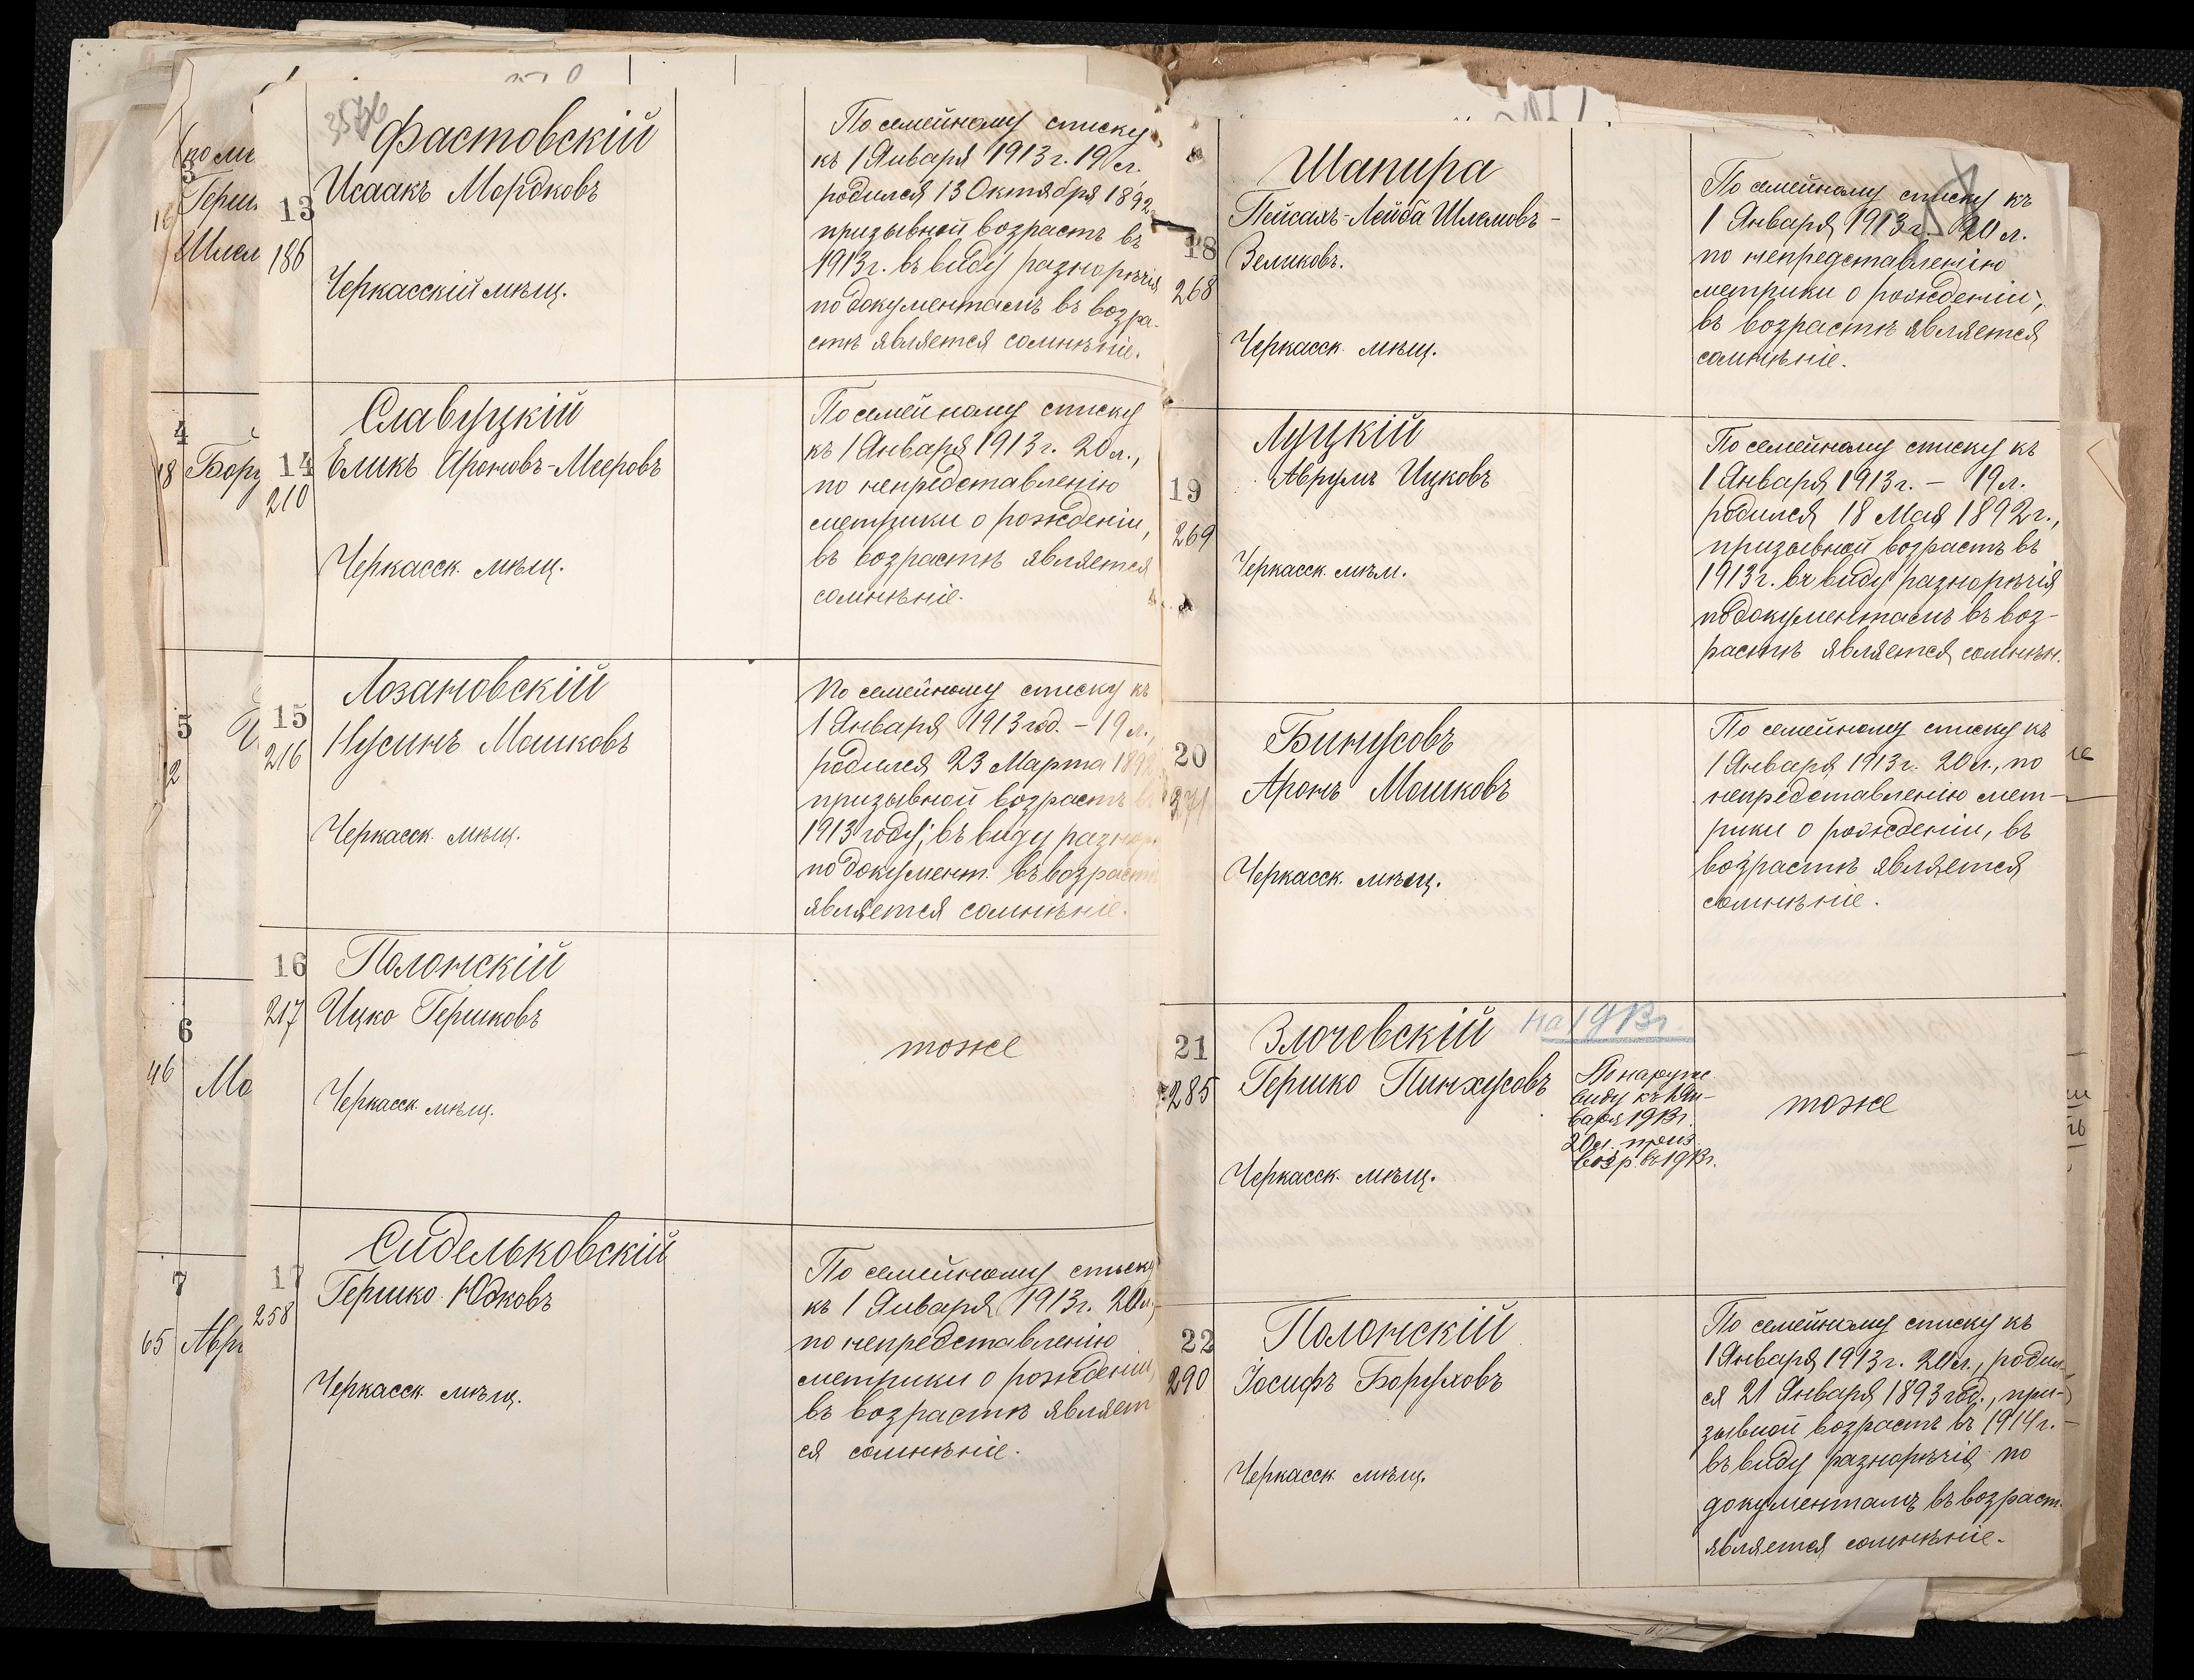 Фастовскій
13
Исаакъ Мордковъ
186
Черкасскій мѣщ.
По семейному списку
къ 1 Января 1913 г. 19 л.
родился 13 Октября 1892
призывной возрастъ въ
1913 г. въ виду разнорѣчія
по документамъ въ возра-
стѣ является сомнѣніе.
Славуцкій
14
Еликъ Ароновъ-Мееровъ
210
Черкасск. мѣщ.
По семейному списку
къ 1 Января 1913 г. 20 л.,
по непредставленію
метрики о рожденіи,
въ возрастѣ является
сомнѣніе.
Лозановскій
15
Нусинъ Мошковъ
216
Черкасск. мѣщ.
По семейному списку къ
1 Января 1913 год. - 19 л.,
родился 23 Марта
призывной возрастъ
1913 году; въ виду
по документ. въ возраст
является сомнѣніе.
16
Полонскій
217
Ицко Гершковъ
Черкасск. мѣщ.
тоже
Сидельковскій
17
Гершко Юдковъ
258
Черкасск. мѣщ.
По семейному списку
къ 1 Января 1913 г. 20 л.,
по непредставленію
метрики о рожденіи,
въ возрастѣ являет
ся сомнѣніе.
4
18
5
12
6
46
Мо
7
65
Шапира
Пейсахъ-Лейба Шлемовъ-
18
Зеликовъ.
268
Черкасск. мѣщ.
По семейному списку къ
1 Января 1913 г. 20 л.
по непредставленію
метрики о рожденіи,
въ возрастѣ является
сомнѣніе.
Луцкій
19
Аврумъ Ицковъ
269
Черкасск. мѣщ.
По семейному списку къ
1 Января 1913 г. - 19 л.
родился 18 Мая 1892 г.,
призывной возрастъ въ
1913 г. въ виду разнорѣчія
по документамъ въ воз-
растѣ является сомнѣн.
20
Бинусовъ
Аронъ Мошковъ
Черкасск. мѣщ.
По семейному списку къ
1 Января 1913 г. 20 л., по
непредставленію мет-
рики о рожденіи, въ
возрастѣ является
сомнѣніе.
21
Злочевскій
на 1913 г.
285
Гершко Пинхусовъ
Черкасск. мѣщ.
По наруж
виду къ 1 Ян-
варя 1913 г.
20 л. приз.
возр. въ 1913 г.
тоже
22
Полонскій
290
Іосифъ Боруховъ
Черкасск. мѣщ.
По семейному списку къ
1 Января 1913 г. 20 л., родил-
ся 21 Января 1893 год., при-
зывной возрастъ въ 1914 г. -
въ виду разнорѣчія по
документамъ въ возраст.
является сомнѣніе.